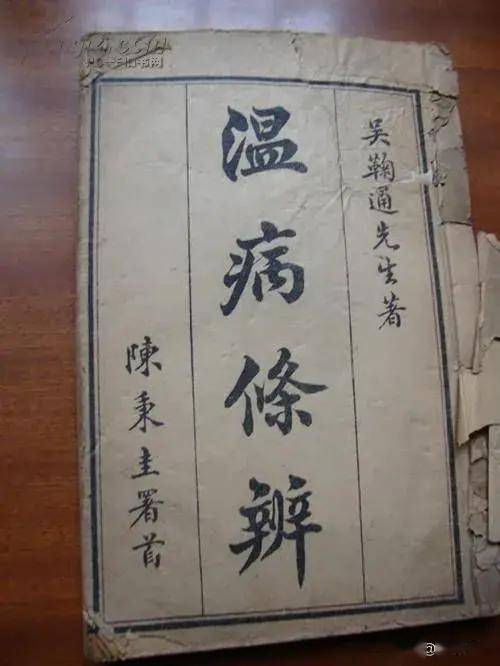 吴鞠通先生著
温病條辨
陳秉圭署首